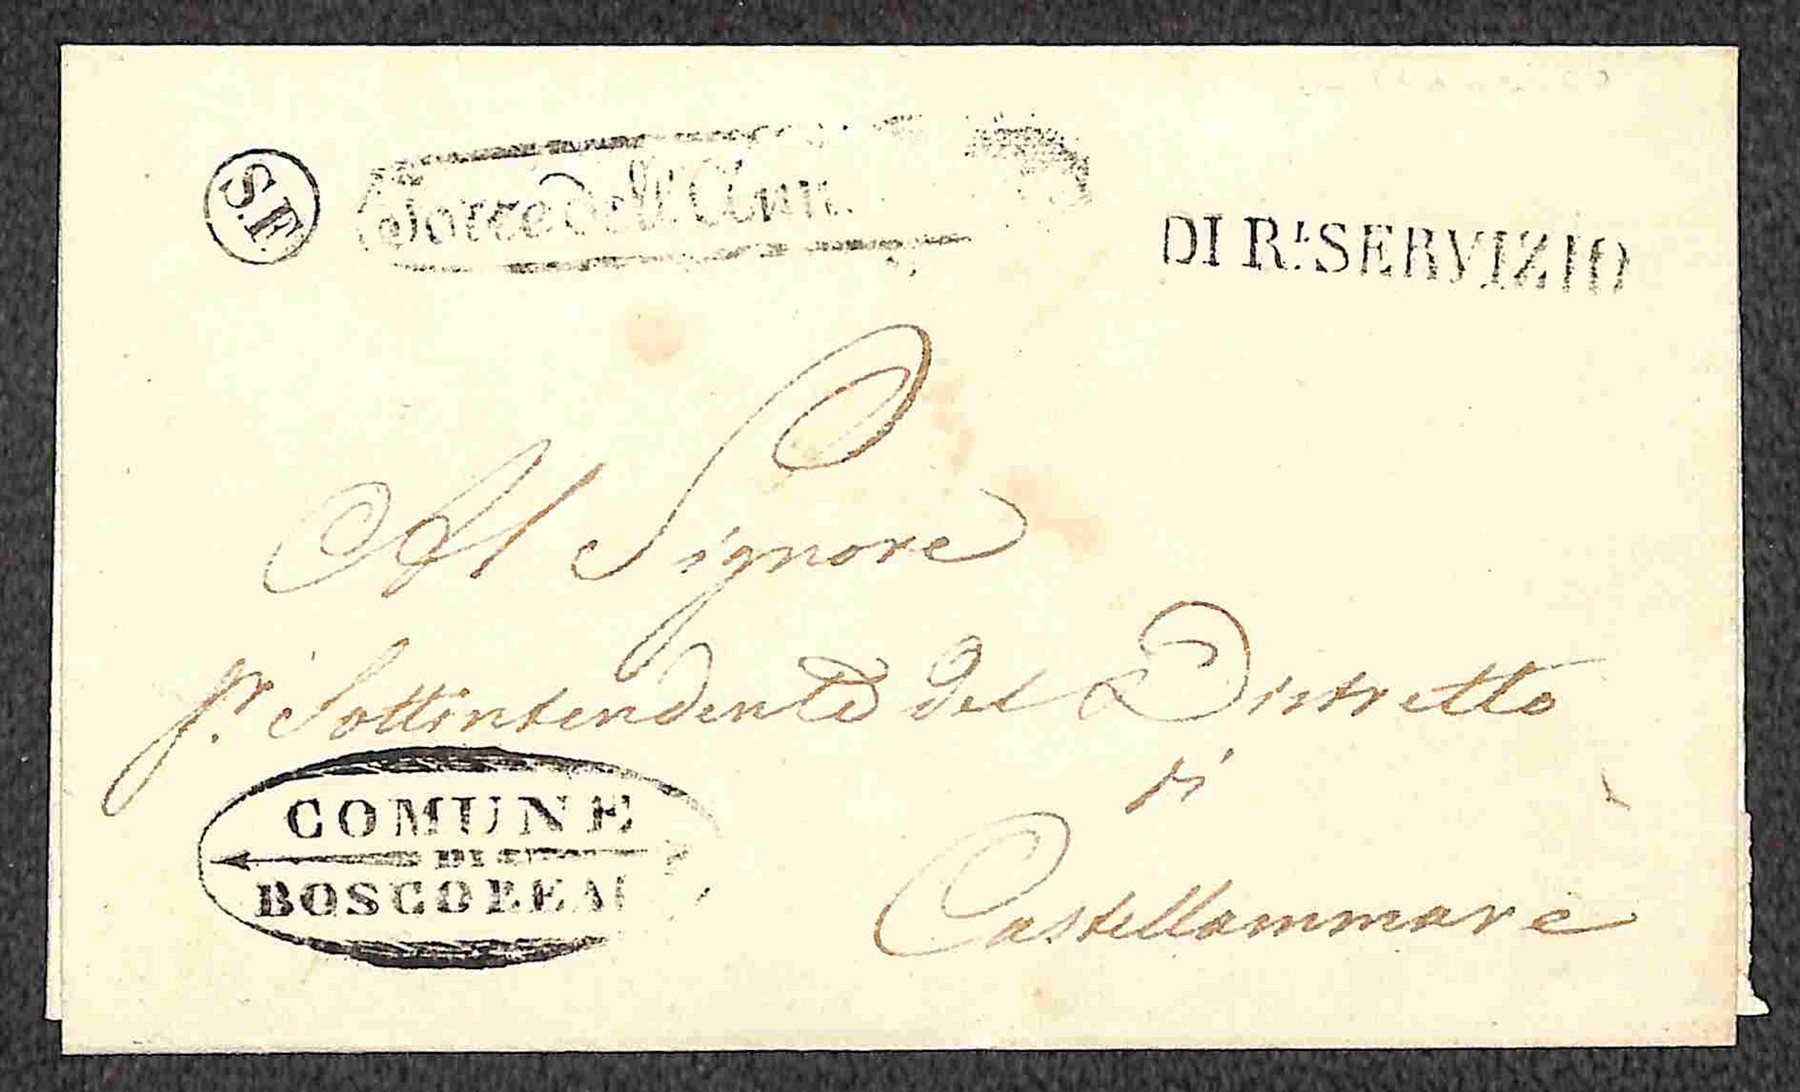 S.F.
Torre dell'Ann.
DI R.L SERVIZIO
Al Signore
Sr Sottintendente del Distretto
di
Castellammare
COMUNE
DI
BOSCOREA